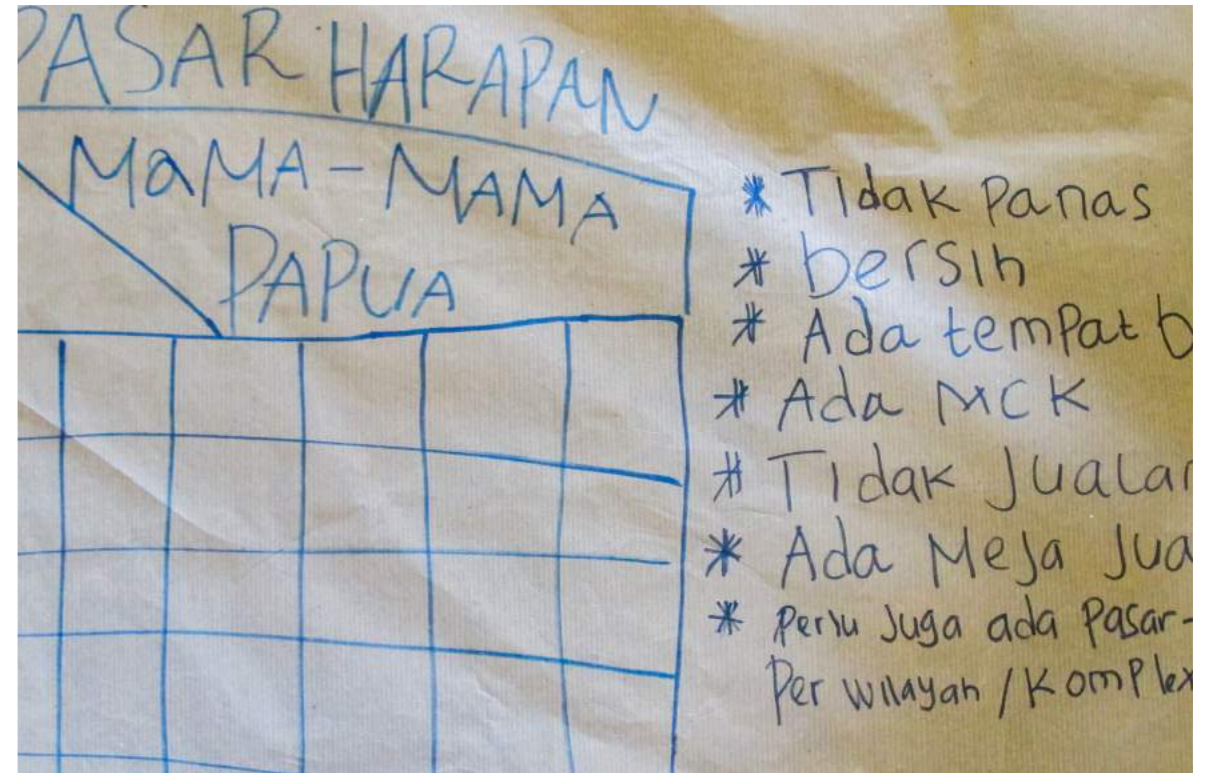 PASAR HARAPAN
MaMA-MAMA
PAPUA
* Tidak Panas
* bersih
* Ada temPat b
* Ada MCK
* Tidak Jualan
* Ada Meja Jua
* Perlu Juga ada Pasar-
Per wilayah / Komplex